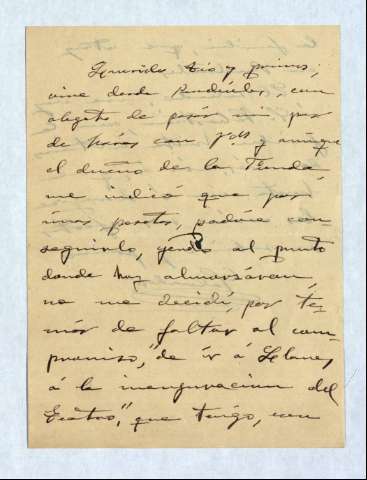 Queridos tíos y primos;
vine desde Pendueles, con
objeto de pasár un par
de horas con Vds y aúnque
el dueño de la Tienda
me indicó que por
unas pesetas, podría con-
seguirlo, yendo al punto
donde hoy almorsáran,
no me decidí, por te-
mór de faltar al com-
promiso, "de ir á Llanes,
á la inauguracion del
Teatro," que tengo, con